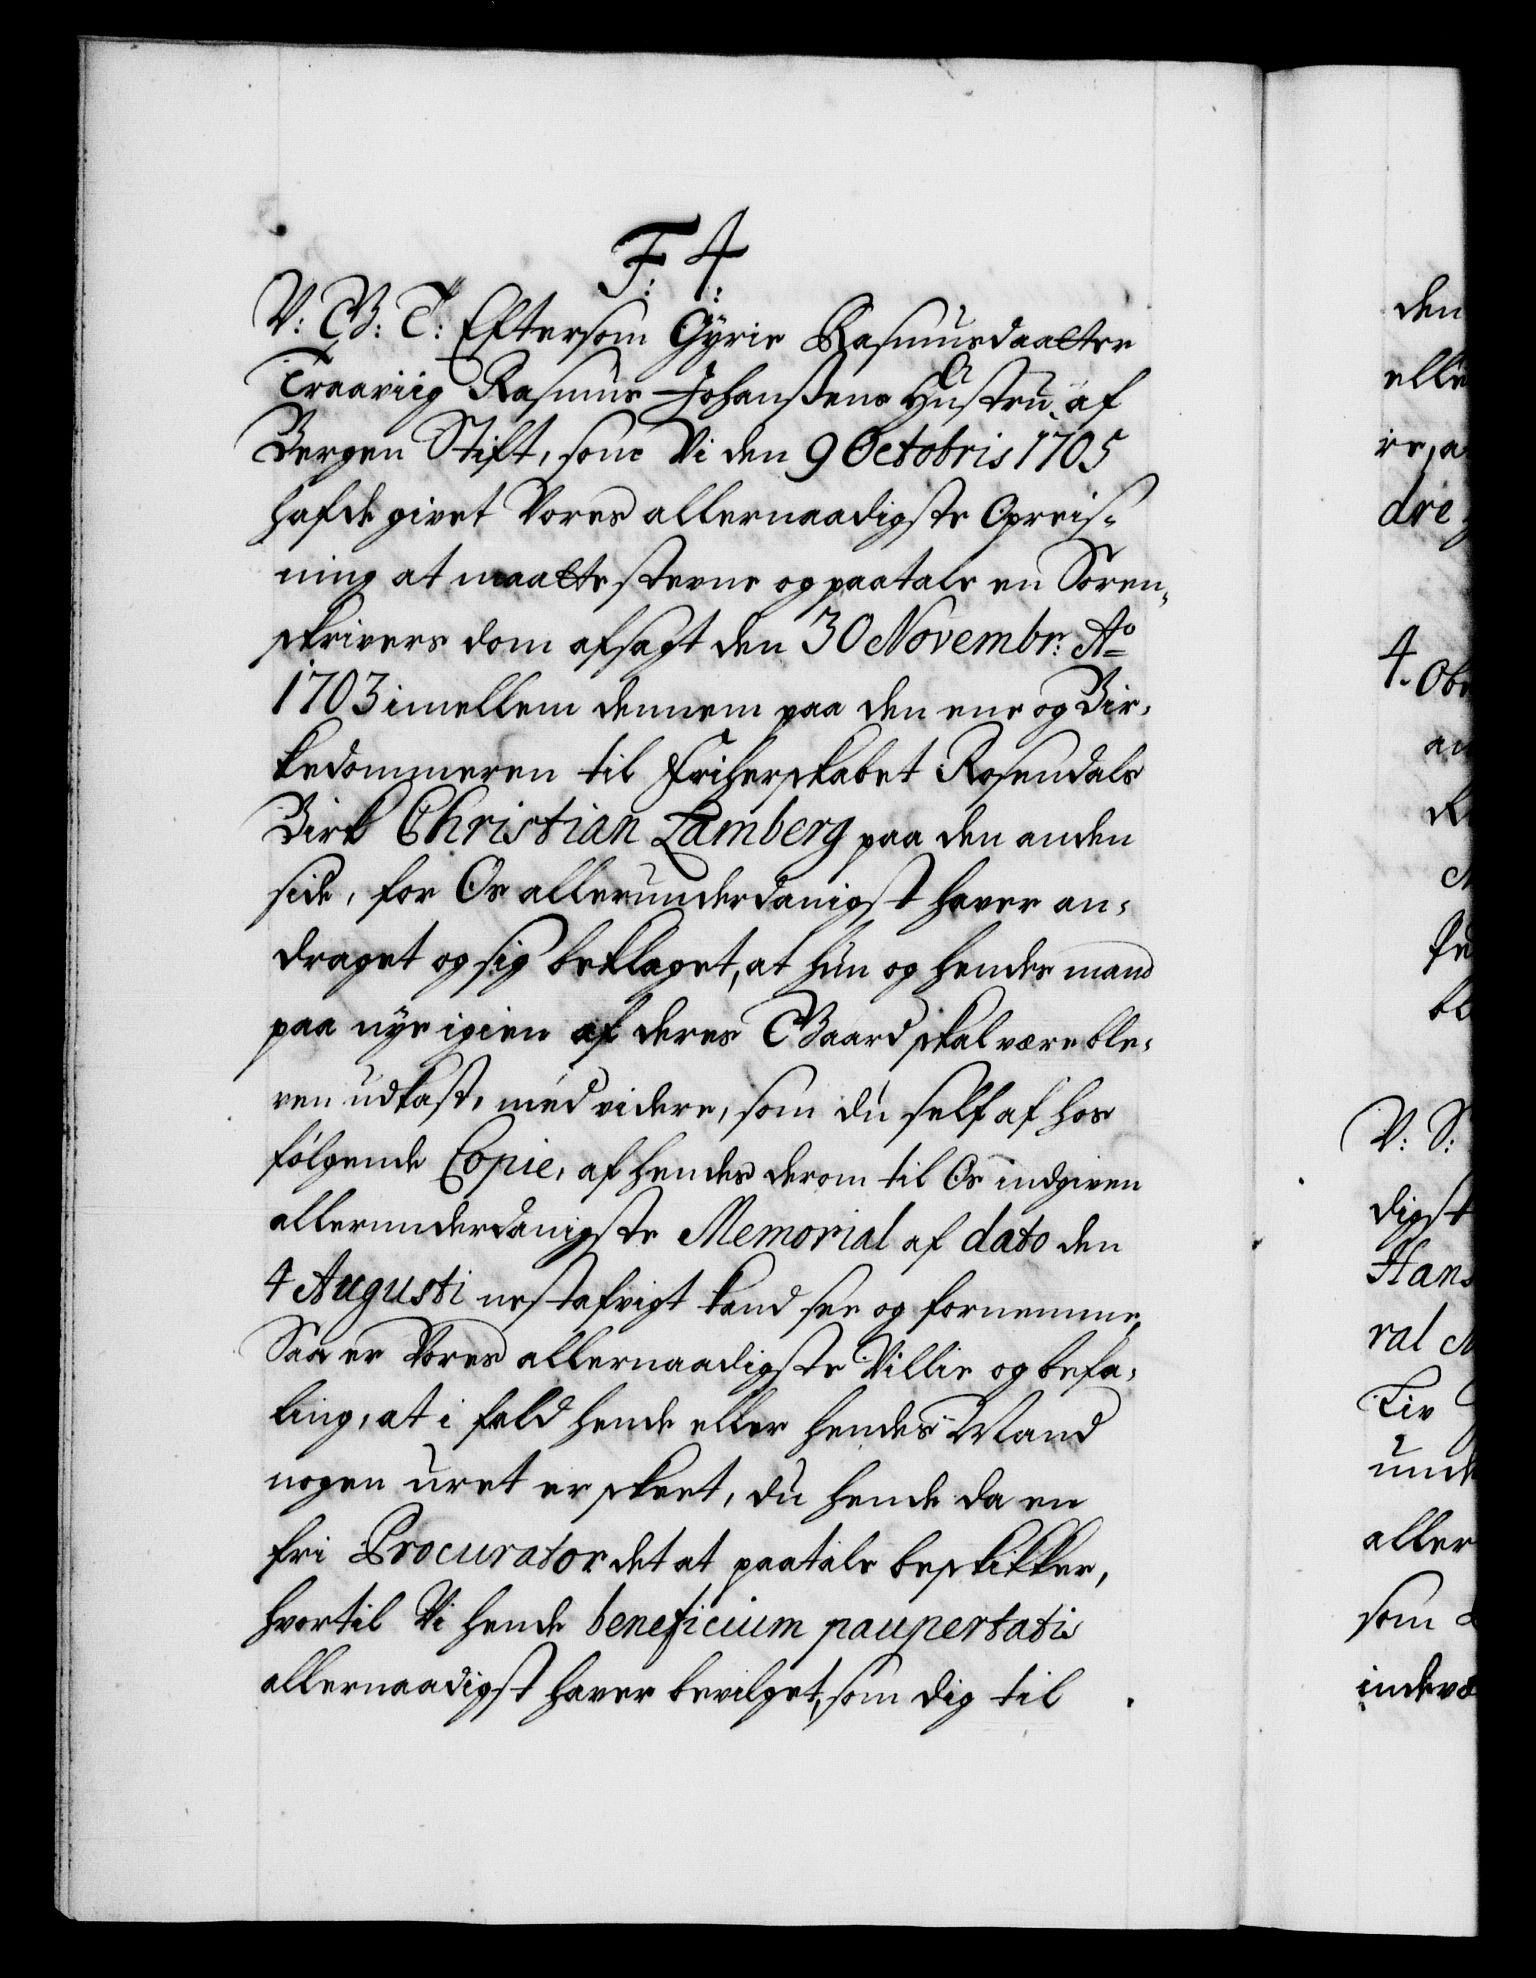 F: 4:
V: G: T: Eftersom Gyrie Rasmusdaatter
Traaviig Rasmus Johanßens Hustru af
Bergen Stift, som Vi den 9 Octobris 1705
hafde givet Vores allernaadigste Opreis-
ning at maatte stevne og paatale en Soren-
skrivers dom afsagt den 30 Novembr: Ao
1703 imellem dennem paa den ene og Bir-
kedommeren til Friherskabet Rosendals
Birk Christian Lamberg paa den anden
side, for Os allerunderdanigst haver an-
draget og sig beklaget, at hun og hendes mand
paa nye igien af deres Gaard skal være ble-
ven udkast, med videre, som du self af hos
følgende Copie, af hendes derom til Os indgiven
allerunderdanigste Memorial af dato den
4 Augusti nestafvigt kand see og fornemme,
Saa er Vores allernaadigste Villie og befa-
ling, at i fald hende eller hendes Mand
nogen uret er skeet, du hende da en
fri Procurator det at paatale beskikker,
hvortil Vi hende beneficium paupertatis
allernaadigst haver bevilget, som dig til
den
elle
re, a
dre
4. Ob
an
V: S:
digst
Hans
ral
Liv
unde
aller
som
indvæ